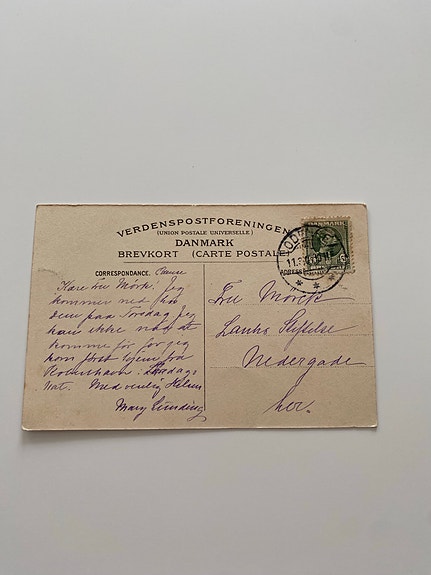 VERDENSPOSTFORENINGEN
(UNION POSTALE UNIVERSELLE)
DANMARK
BREVKORT (CARTE POSTALE
DANMARK
ODENSE
11.
CORRESPONDANCE.
Kære Fru Mørk! Jeg
kommer ned
dem paa Torsdag Jeg
kan ikke naa at
komme før for jeg
kom først hjem fra
Kobenhavn. Lørdags
Nat. Med venlig Hilsen
Mary
Fru Mørck
Lahns Stiftelse
Nedergade
her.